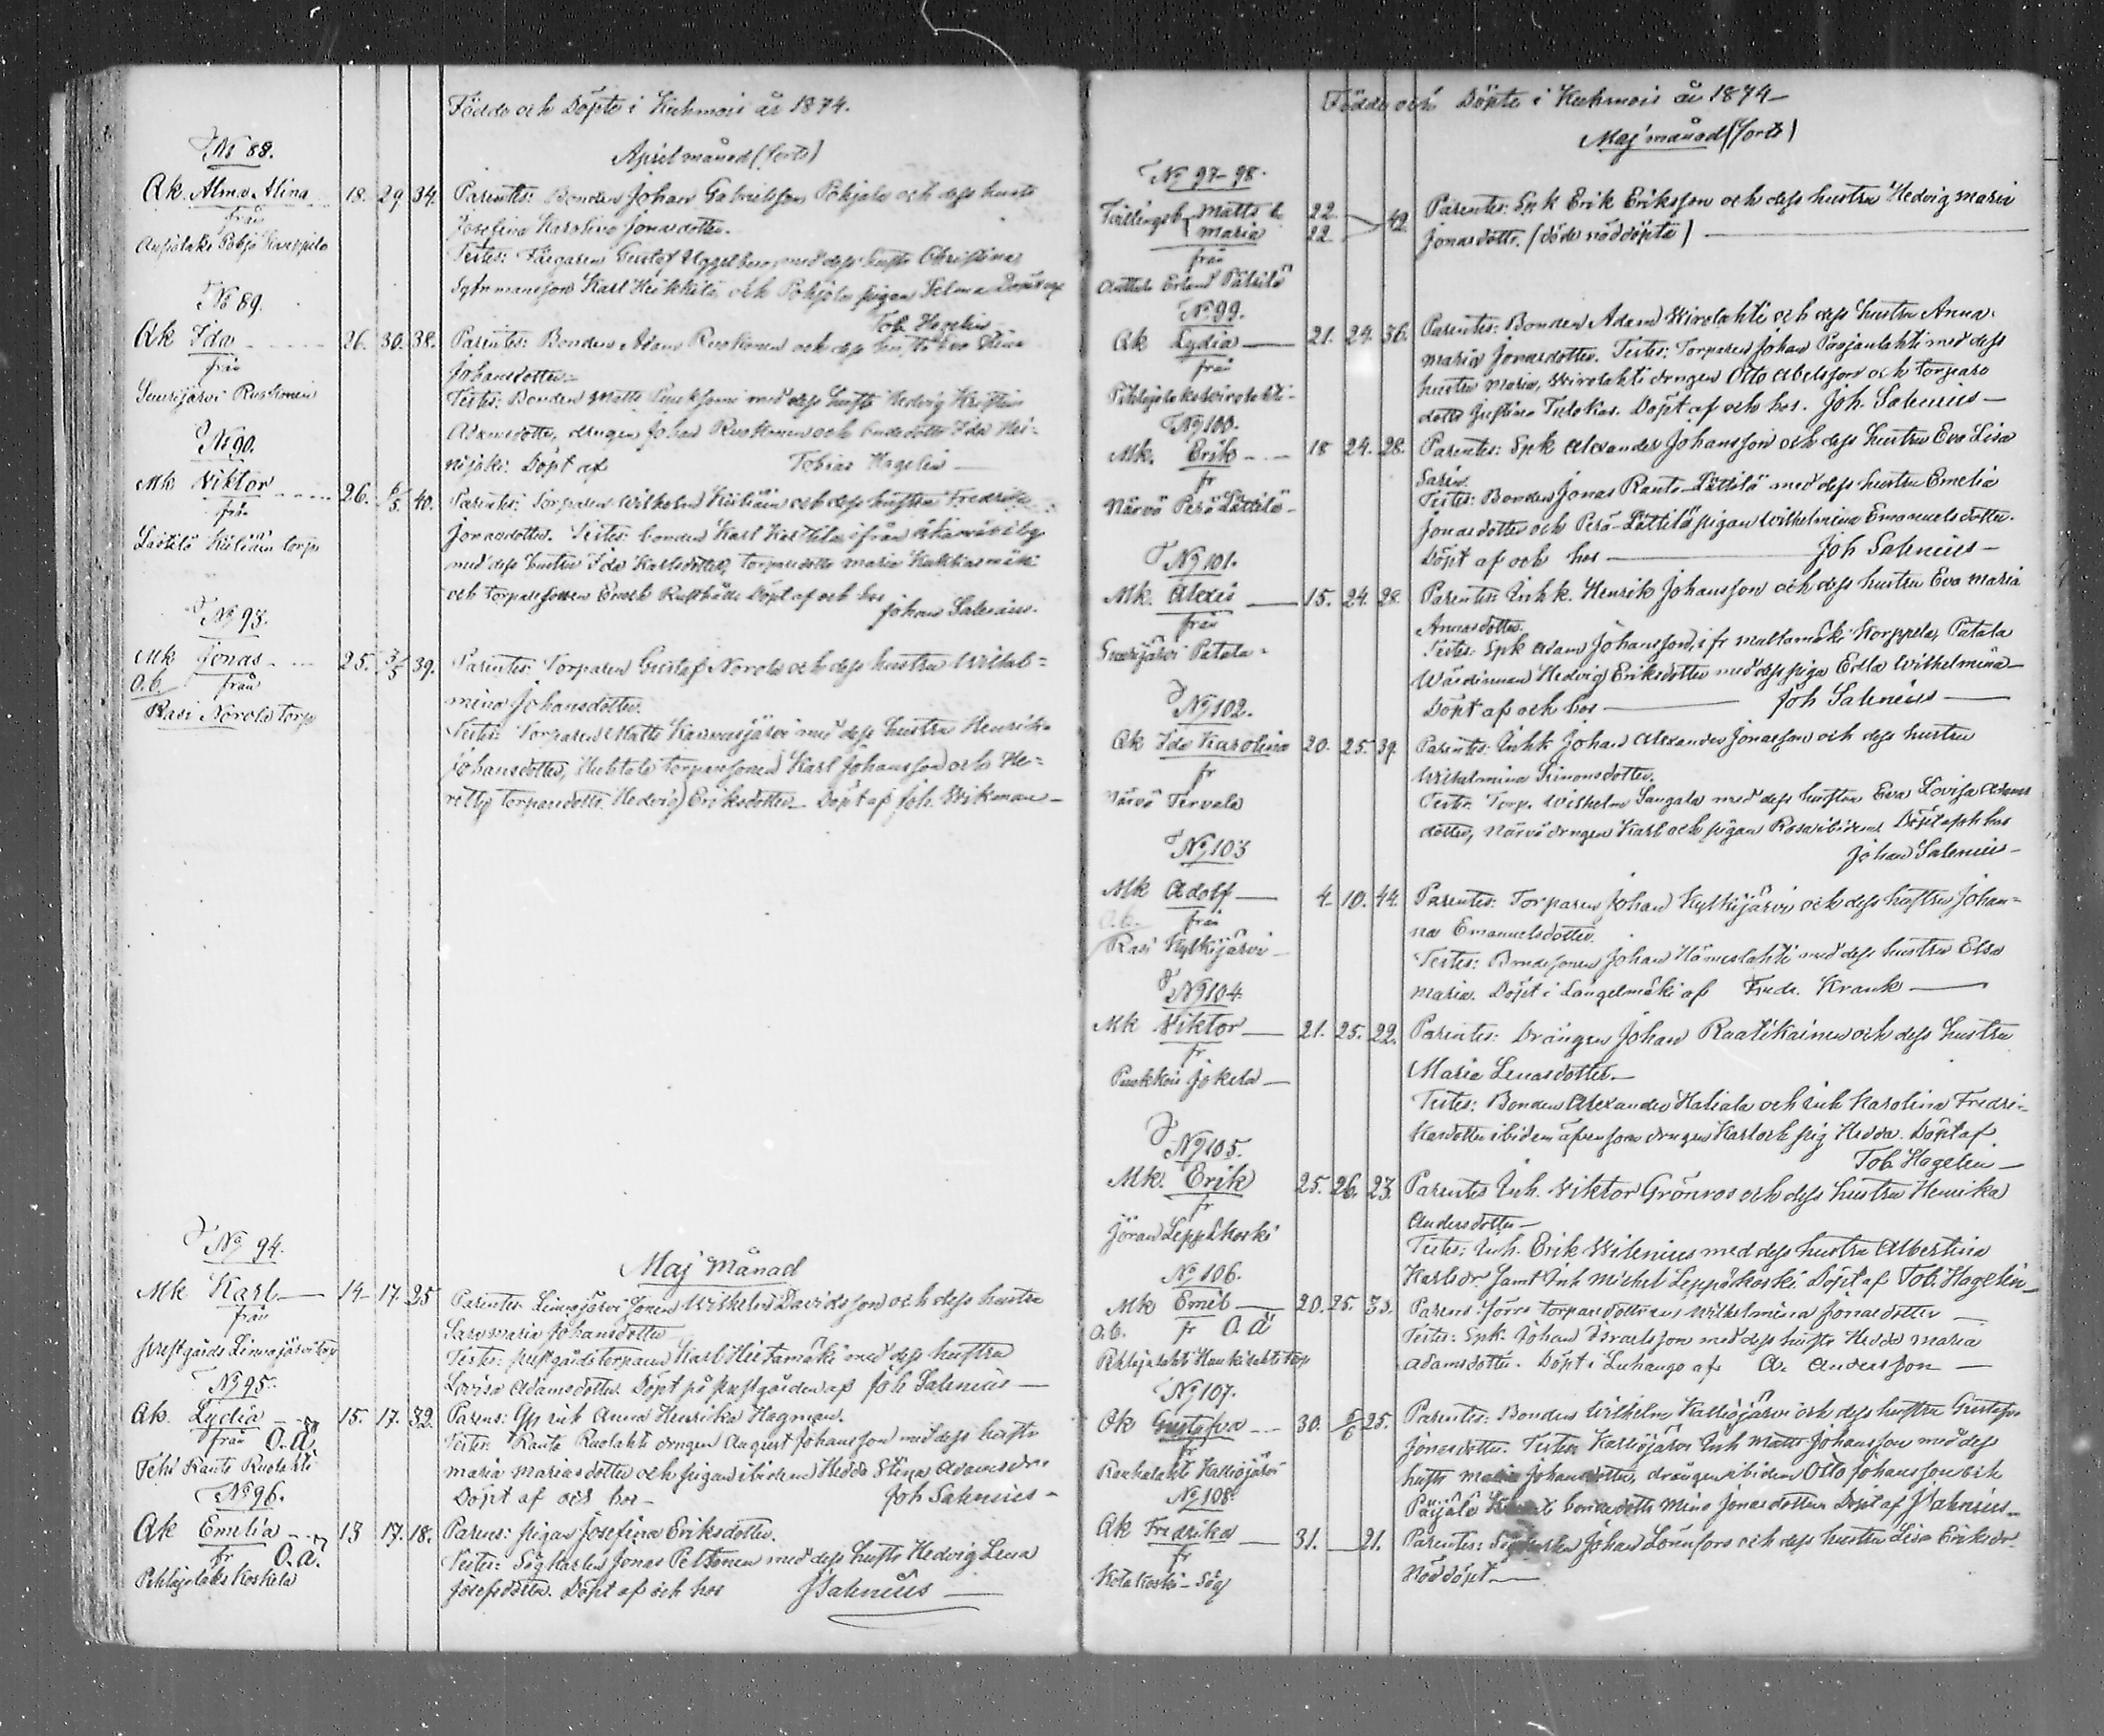 Födde och Döpte i Kuhmois år 1874.
April månad (forts)
No 88.
Qk. Alma Alina 18. 29 34.
från
Parentes: Bonden Johan Gabrielsson Pohjala och dess hustr
Josefina Karolina Jonasdotter.
Testes: Färgaren Gustaf med dess hustr Christina
Karl Heikkilä, och Pohjola pigan Selma
Tob. Hagelin
No 89.
Qk Ida 26. 30. 38.
från
Ruokonen
Parentes: Bonden Adam Ruokonen och dess hustr Eva Lena
Johansdotter.
Testes: Bonden Matts med dess hustr Hedvig Kristin
Adamsdotter, drngen Johan Ruokonen och bondedottr Ida
Döpt af Tobias Hagelin
No 90.
Mk Viktor 26. 6/5. 40.
från
torp
Parentes: Torparen Wilhelm och dess hustru Fredrika
Jonasdotter. Testes: bonden Karl ifrån
med dess hustru Ida Karlsdotter, torparedottr Maria Kukkasmäki
och torparesonen Enok Döpt af och hos
Johan Salenius.
No 93.
Mk Jonas 25. 3/5 39.
O.b. från
Rasi Norola torp
Parentes: Torparen Gustaf Norola och dess hustru Wilhel=
mina Johansdotter.
Testes: Torparen Matts med dess hustru Henrika
Johansdotter, torparesonen Karl Johansson och
torparedottr Hedvig Eriksdotter. Döpt af Joh. Wikman
Maj Månad
No 94.
Mk Karl 14 17. 25
från
prestgårds Linnajärvi torp
Parentes: Linnajärvi sonen Wilhelm Davidsson och dess hustru
Sara Maria Johansdotter
Testes: prestgårdstorparen Karl Hietamäki med dess hustru
Lovisa Adamsdotter. Döpt på prestgården af Joh Salenius
No 95.
Qk. Lydia 15. 17. 32.
från O.ä.
Tehi Rauta Ruolahti
Parens: inh Anna Henrika Hagman.
Testes: Rauta Ruolahti drngen August Johansson med dess hustr
Maria Mariasdotter och pigan ibidem Hedda Stina Adamsdr.
Döpt af och hos Joh Salenius
No 96.
Qk Emelia 13 17. 18.
fr O.ä.
Pihlajalaks Koskela
Parens: pigan Josefina Eriksdotter.
Testes: Jonas Peltonen med dess hustr Hedvig Lena
Josefsdotter. Döpt af och hos J Salenius
Födde och Döpte i Kuhmois år 1874
Maj månad (forts)
No 97-98.
Tvillingsb. Matts b. 22. 42
Maria 22.
från
Parentes: Spk Erik Eriksson och dess hustru Hedvig Maria
Jonasdotter. (döde nöddöpta)
No 99.
Qk Lydia 21. 24. 36.
från
Pihlajalaks Wirolahti
Parentes: Bonden Adam Wirolahti och dess hustru Anna
Maria Jonasdotter. Testes: Torparen Johan Paajanlahti med dess
hustru Maria, Wirolahti drngen Otto Abelsson och torpare
dottr Justina Tulokas. Döpt af och hos. Joh. Salenius
No 100.
Mk. Erik 18 24. 28.
fr
Närvä Perä Lättilä
Parentes: Spk Alexander Johansson och dess hustru Eva Lisa
Sarin.
Testes: Bonden Jonas Rauta-Lättilä med dess hustru Emelia
Jonasdotter och Perä-Lättilä pigan Wilhelmina Emanuelsdotter.
Döpt af och hos Joh Salenius
No 101.
Mk. Alexis 15. 24. 28.
från
Patala
Parentes: Inhk. Henrik Johansson och dess hustru Eva Maria
Annasdotter.
Testes: Spk Adam Johansson, i fr Maltamäki Korppela, Patala
Wärdinnan Hedvig Eriksdotter med dess piga Edla Wilhelmina
Döpt af och hos Joh Salenius
No 102.
Qk Ida Karolina 20. 25. 39.
fr
Närvä Tervala
Parentes: Inhk Johan Alexander Jonasson och dess hustru
Wilhelmina Simonsdotter.
Testes: Torp. Wilhelm Sangala med dess hustru Eva Lovisa Adams
dotter, Närvä drngen Karl och pigan Rosa ibidem. Döpt af och hos
Johan Salenius
No 103
Mk Adolf 4. 10. 44.
O.b. från
Rasi Kylkijärvi
Parentes: Torparen Johan Kylkijärvi och dess hustru Johan=
na Emanuelsdotter.
Testes: Bondesonen Johan Hämeslahti med dess hustru Elsa
Maria. Döpt i Längelmäki af Fredr. Krank
No 104.
Mk Viktor 21. 25. 22.
fr
Puukkois Jokela
Parentes: Drängen Johan Raatikainen och dess hustru
Maria Lenasdotter.
Testes: Bonden Alexander Haliala och inh Karolina Fredri-
kasdotter ibidem äfvensom drngen Karl och pig Hedda. Döpt af
Tob Hagelin
No 105.
Mk. Erik 25. 26. 23.
fr
Jöran Leppäkoski
Parentes Inh. Viktor Grönroos och dess hustru Henrika
Andersdotter
Testes: Inh. Erik Wilenius med dess hustru Albertina
Karlsdr. samt Inh Michel Leppäkoski. Döpt af Tob Hagelin
No 106.
Mk Emil 20. 25.
O.b. fr O.ä
Pihlajalahti Haukilahti torp
Parens: förra torparedottren Wilhelmina Jonasdotter
Testes: Spk. Johan Israelsson med dess hustr Hedda Maria
Adamsdotter. Döpt i Luhango af A. Andersson
No 107.
Qk Gustafva 30. 5/6 25.
fr
Kalliojärvi
Parentes: Bonden Wilhelm Kalliojärvi och dess hustru Gustafva
Jonasdotter. Testes Kalliojärvi Inh Matts Johansson med dess
hustr Maria Johansdotter, drängen ibidem Otto Johansson och
Päijälä bondedottr Mina Jonasdotter. Döpt af J Salenius
No 108.
Qk Fredrika 31. 21.
fr
Kotakoski Såg
Parentes: Johan Lönnfors och dess hustru Lisa Eriksdr.
Nöddöpt